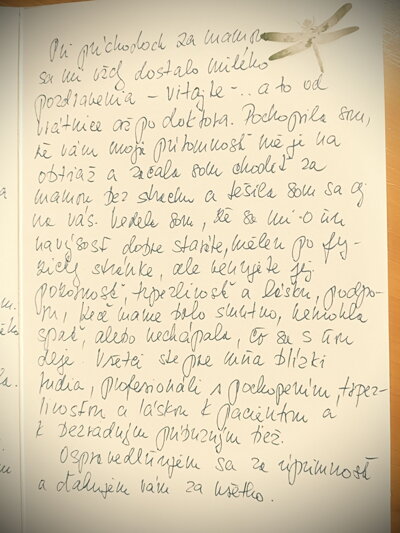 Pri príchodoch za mamou
sa mi vždy dostalo milého
pozdravenia – vitajte – .. a to od
vrátnice až po doktora. Pochopila som,
že vám moja prítomnosť nie je na
obtiaž a začala som chodiť za
mamou bez strachu a tešila som sa aj
na vás. Vedela som, že sa mi o ňu
navýsosť dobre staráte, nielen po fy-
zickej stránke, ale venujete jej
pozornosť, trpezlivosť a lásku, podpo-
ru, keď mame bolo smutno, nemohla
spať, alebo nechápala, čo sa s ňou
deje. Všetci ste pre mňa blízki
ľudia, profesionáli s pochopením, trpez-
livosťou a láskou k pacientom a
k bezradným príbuzným tiež.
Ospravedlňujem sa za úprimnosť
a ďakujem vám za všetko.